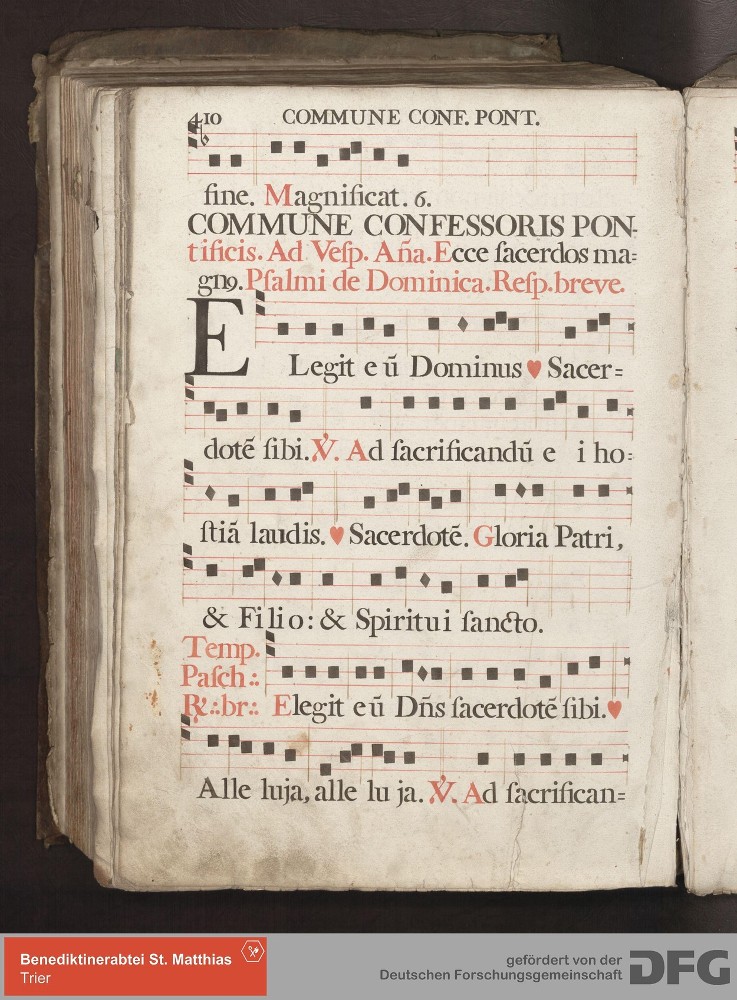 410 COMMUNE CONF. PONT.
fine. Magnificat. 6.
COMMUNE CONFESSORIS PON-
tificis. Ad Veſp. Aña. Ecce ſacerdos ma=
gnꝯ. Pſalmi de Dominica. Reſp. breve.
ELegit eũ Dominus ♥ Sacer=
dotẽ ſibi. ℣. Ad ſacrificandũ e i ho=
ſtiã laudis. ♥ Sacerdotẽ. Gloria Patri,
& Filio: & Spiritui ſancto.
Temp.
Paſch.:
℟.:br.: Elegit eũ Dñs ſacerdotẽ ſibi. ♥
Alle luja, alle lu ja. ℣. Ad ſacrifican=
Benediktinerabtei St. Matthias
Trier
gefördert von der
Deutschen Forschungsgemeinschaft
DFG